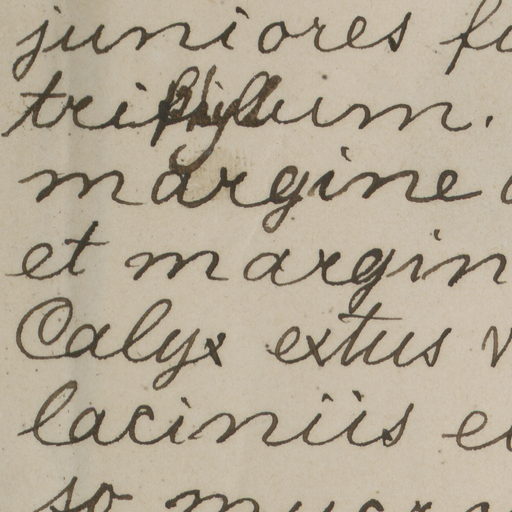 juniores fo
triphyllum.
margine
et margin
Calyx extus v
laciniis e
so mucr